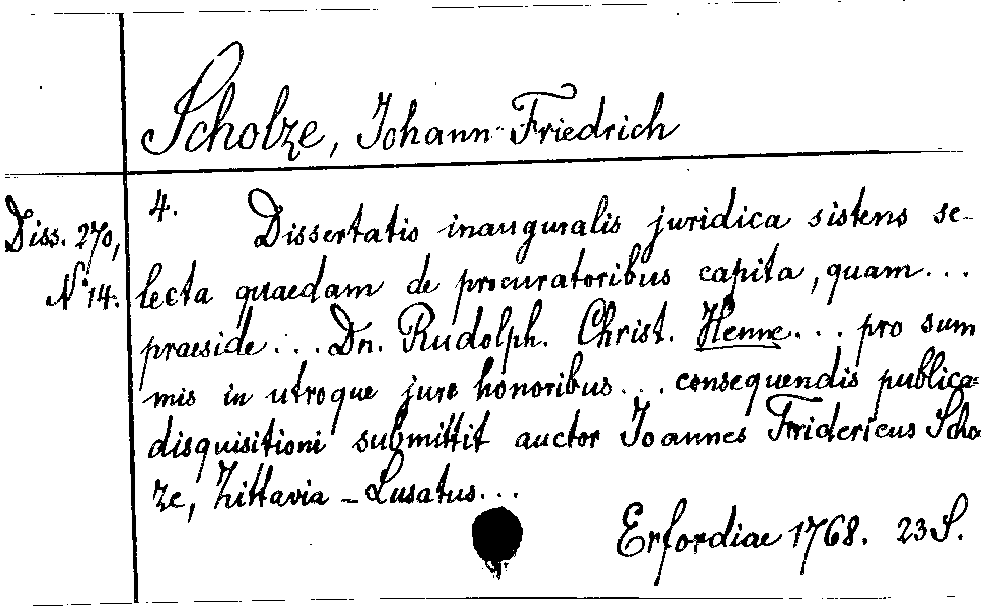 Scholze, Johann Friedrich
4. Dissertatio inauguralis juridica sistens se-
Diss. 270,
lecta quaedam de procuratoribus capita, quam...
N 14.
praeside... Dn. Rudolph. Christ. Henne... pro sum
mis in utroque jure honoribus... consequendis publica=
disquisitioni submittit auctor Joannes Fridericus Scho
ze, Zittavia-Lusatus...
Erfordiae 1768. 23 S.